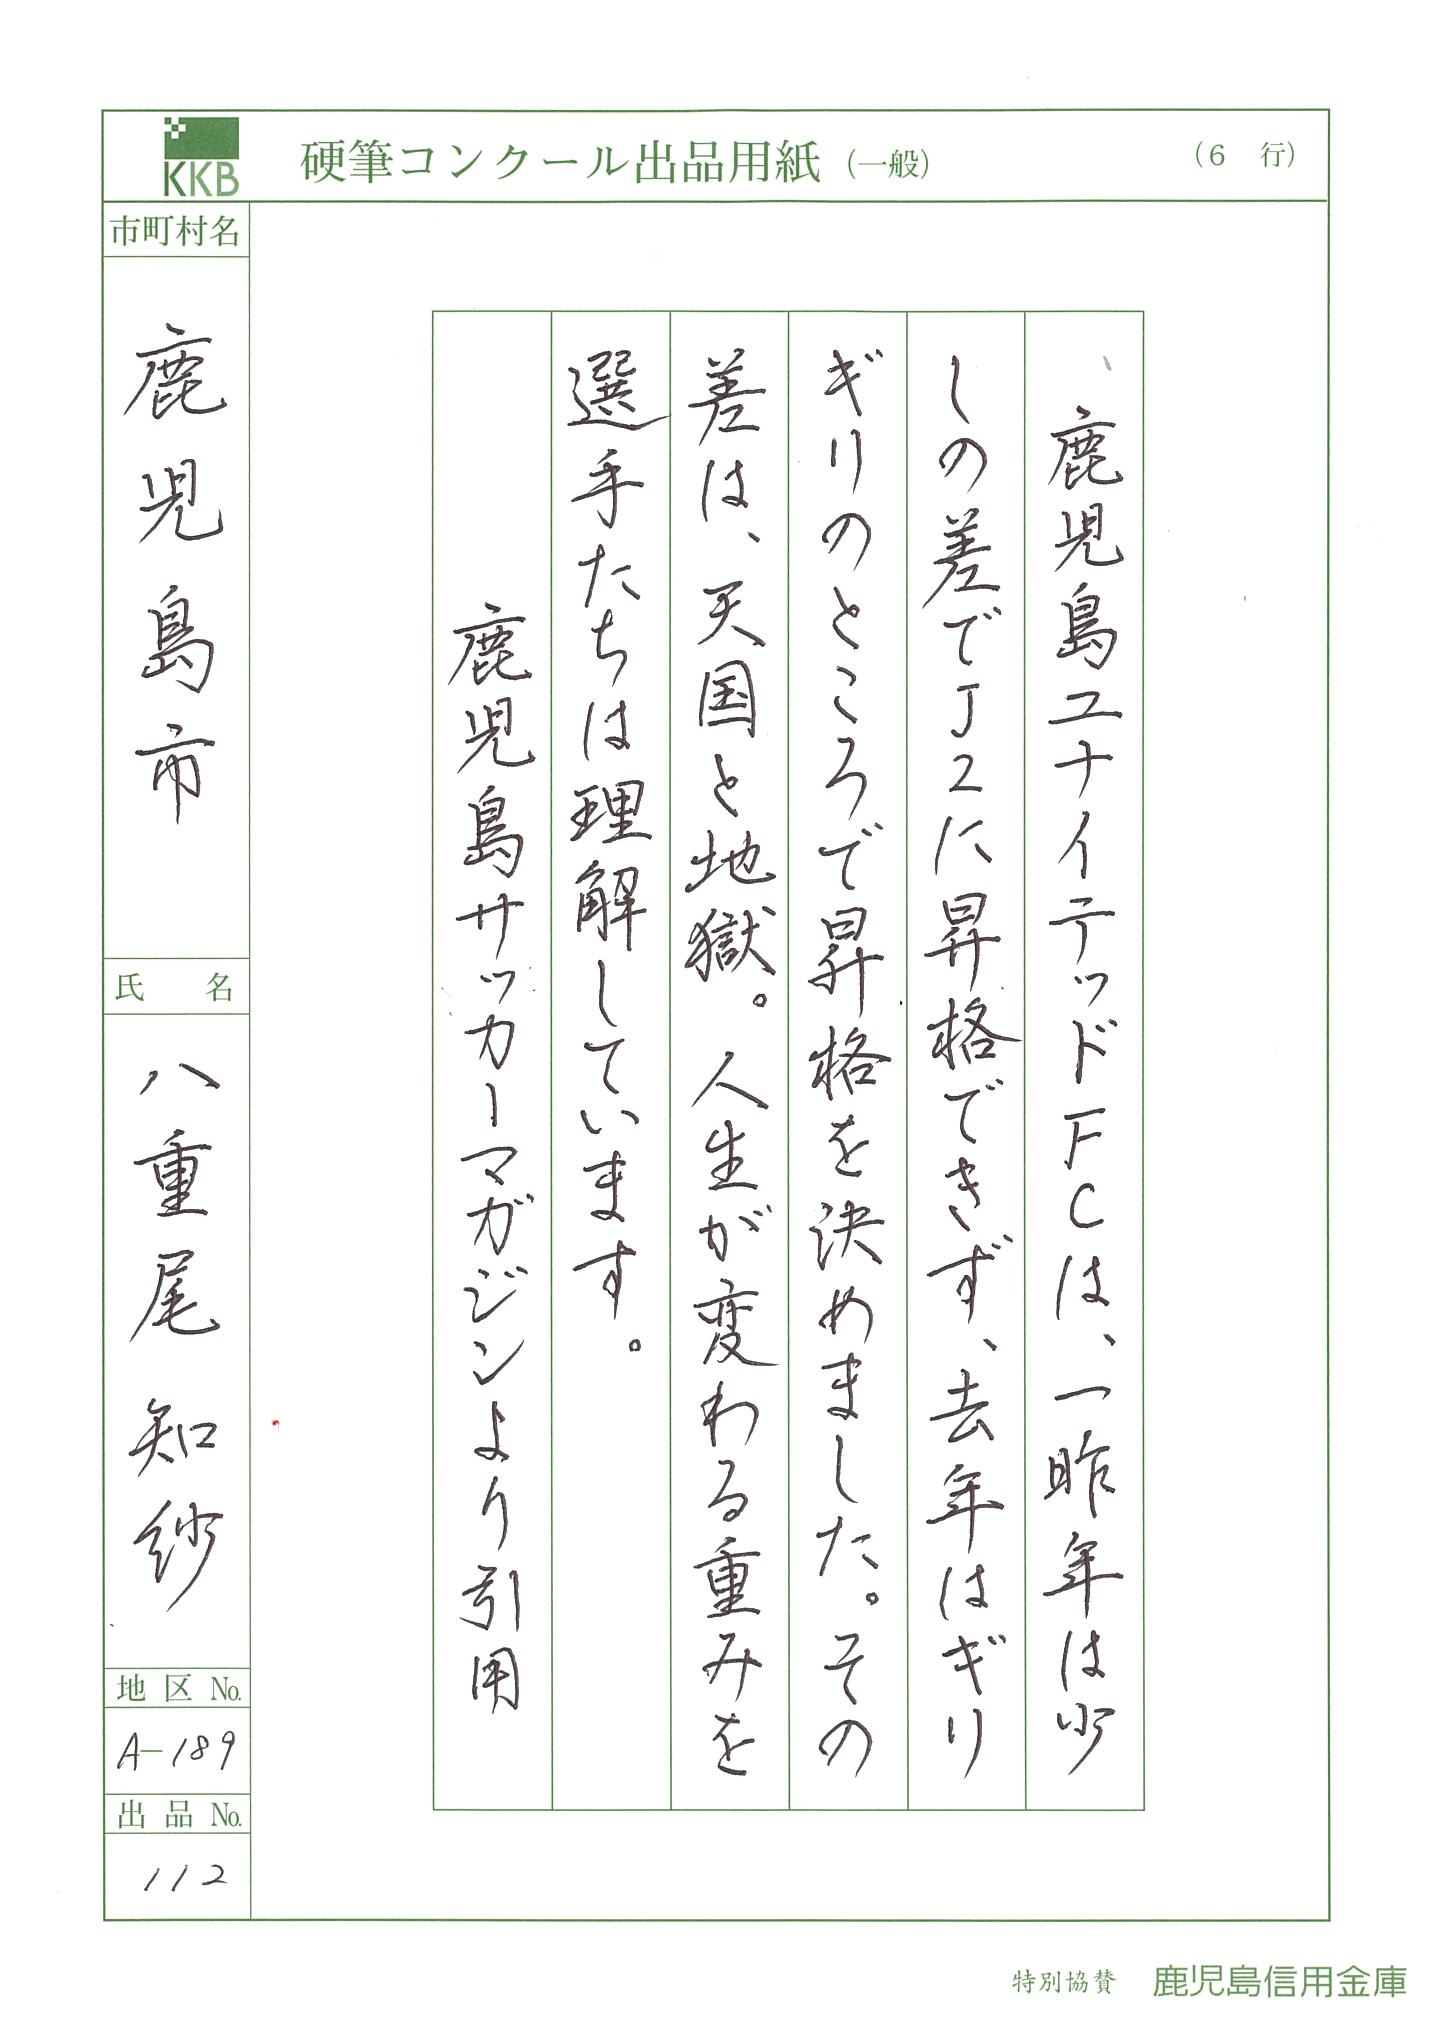 KKB
硬筆コンクール出品用紙（一般）
（6 行）
鹿児島ユナイテッドFCは、一昨年は少
しの差でJ2に昇格できず、去年はギリ
ギリのところで昇格を決めました。その
差は、天国と地獄。人生が変わる重みを
選手たちは理解しています。
鹿児島サッカーマガジンより引用
市町村名
鹿児島市
氏名
八重尾知紗
地区No.
A-189
出品No.
112
特別協賛 鹿児島信用金庫